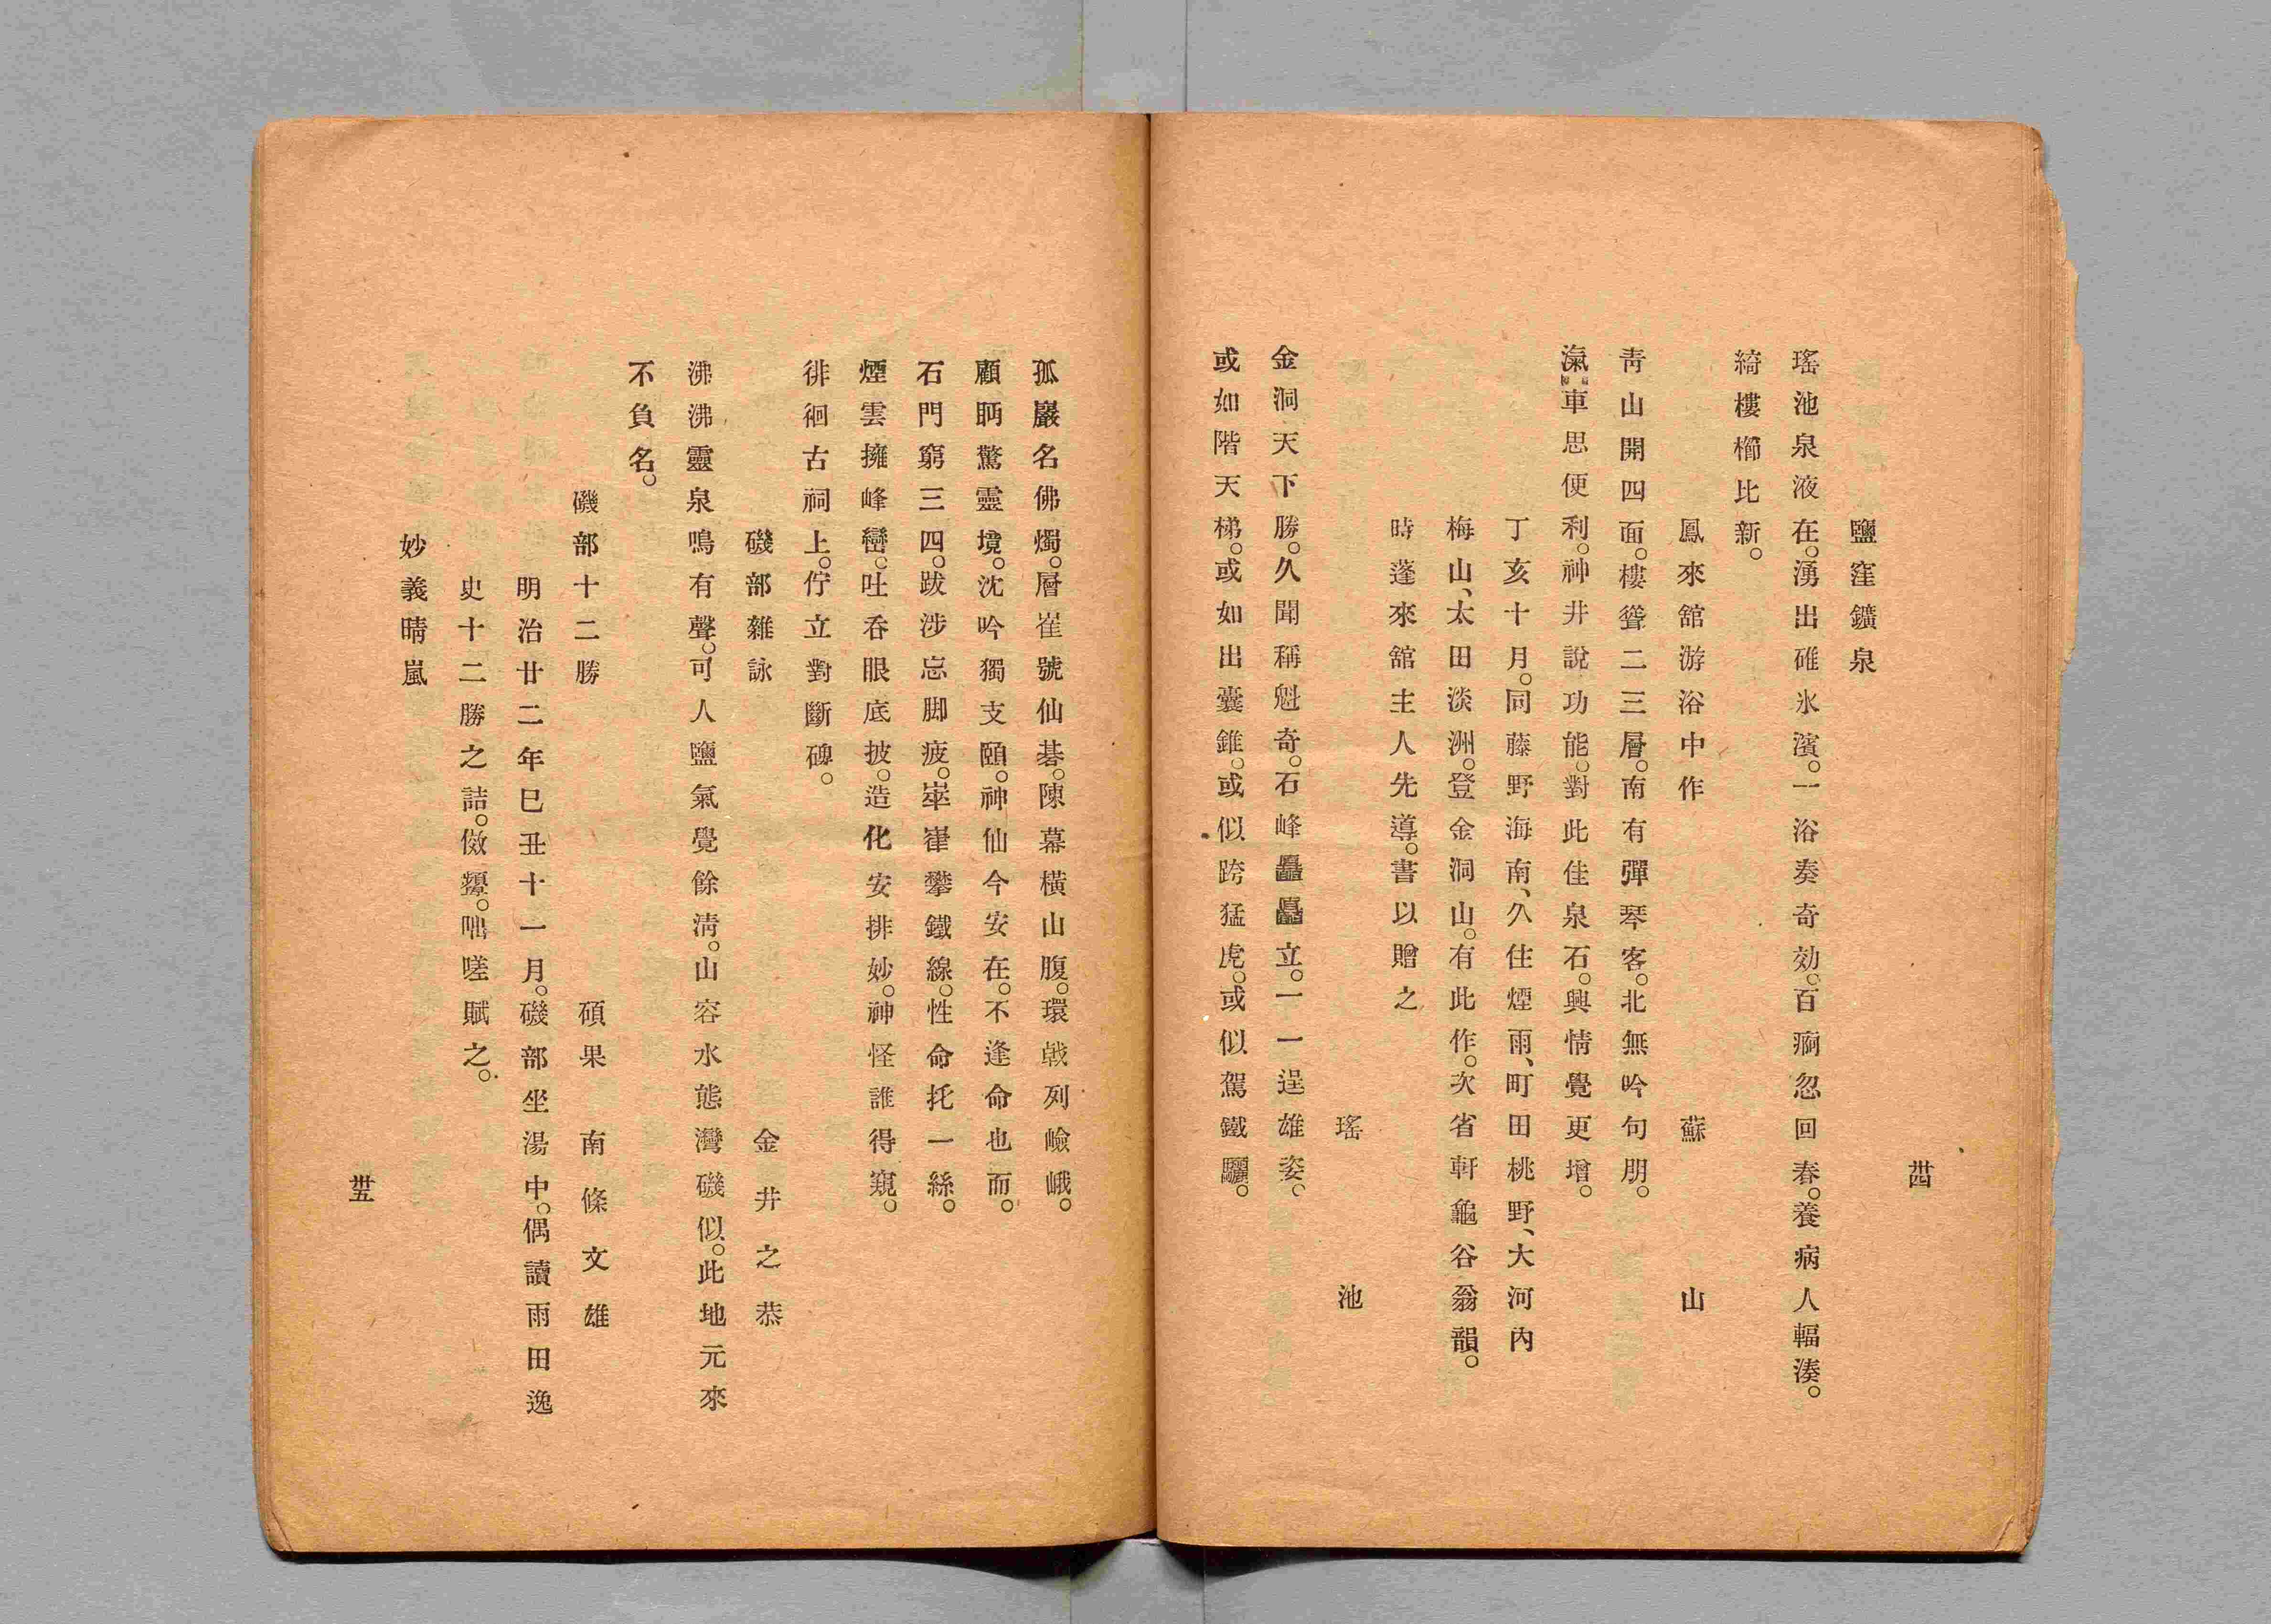 卌四
鹽窪鑛泉
瑤池泉液在。湧出碓氷濱。一浴奏奇効。百痾忽回春。養病人輻湊。
綺樓櫛比新。
鳳來舘游浴中作 蘇山
靑山開四面。樓聳二三層。南有彈琴客。北無吟句朋。
滊車思便利。神井說功能。對此佳泉石。興情覺更增。
丁亥十月。同藤野海南、久住煙雨、町田桃野、大河內
梅山、太田淡洲。登金洞山。有此作。次省軒龜谷翁韻。
時蓬來舘主人先導。書以贈之
瑤池
金洞天下勝。久聞稱魁奇。石峰矗矗立。一一逞雄姿。
或如階天梯。或如出囊錐。或似跨猛虎。或似駕鐵驪。
孤巖名佛燭。層崔號仙碁。陳幕橫山腹。環戟列嶮峨。
顧眄驚靈境。沈吟獨支頤。神仙今安在。不逢命也而。
石門窮三四。跋涉忘脚疲。崒嵂攀鐵線。性命托一絲。
煙雲擁峰巒。吐呑眼底披。造化安排妙。神怪誰得窺。
徘徊古祠上。佇立對斷碑。
磯部雜詠 金井之恭
沸沸靈泉鳴有聲。可人鹽氣覺餘淸。山容水態灣磯似。此地元來
不負名。
磯部十二勝 碩果 南條文雄
明治廿二年巳丑十一月。磯部坐湯中。偶讀雨田逸
史十二勝之詰。傚顰。咄嗟賦之。
妙義晴嵐
卌五